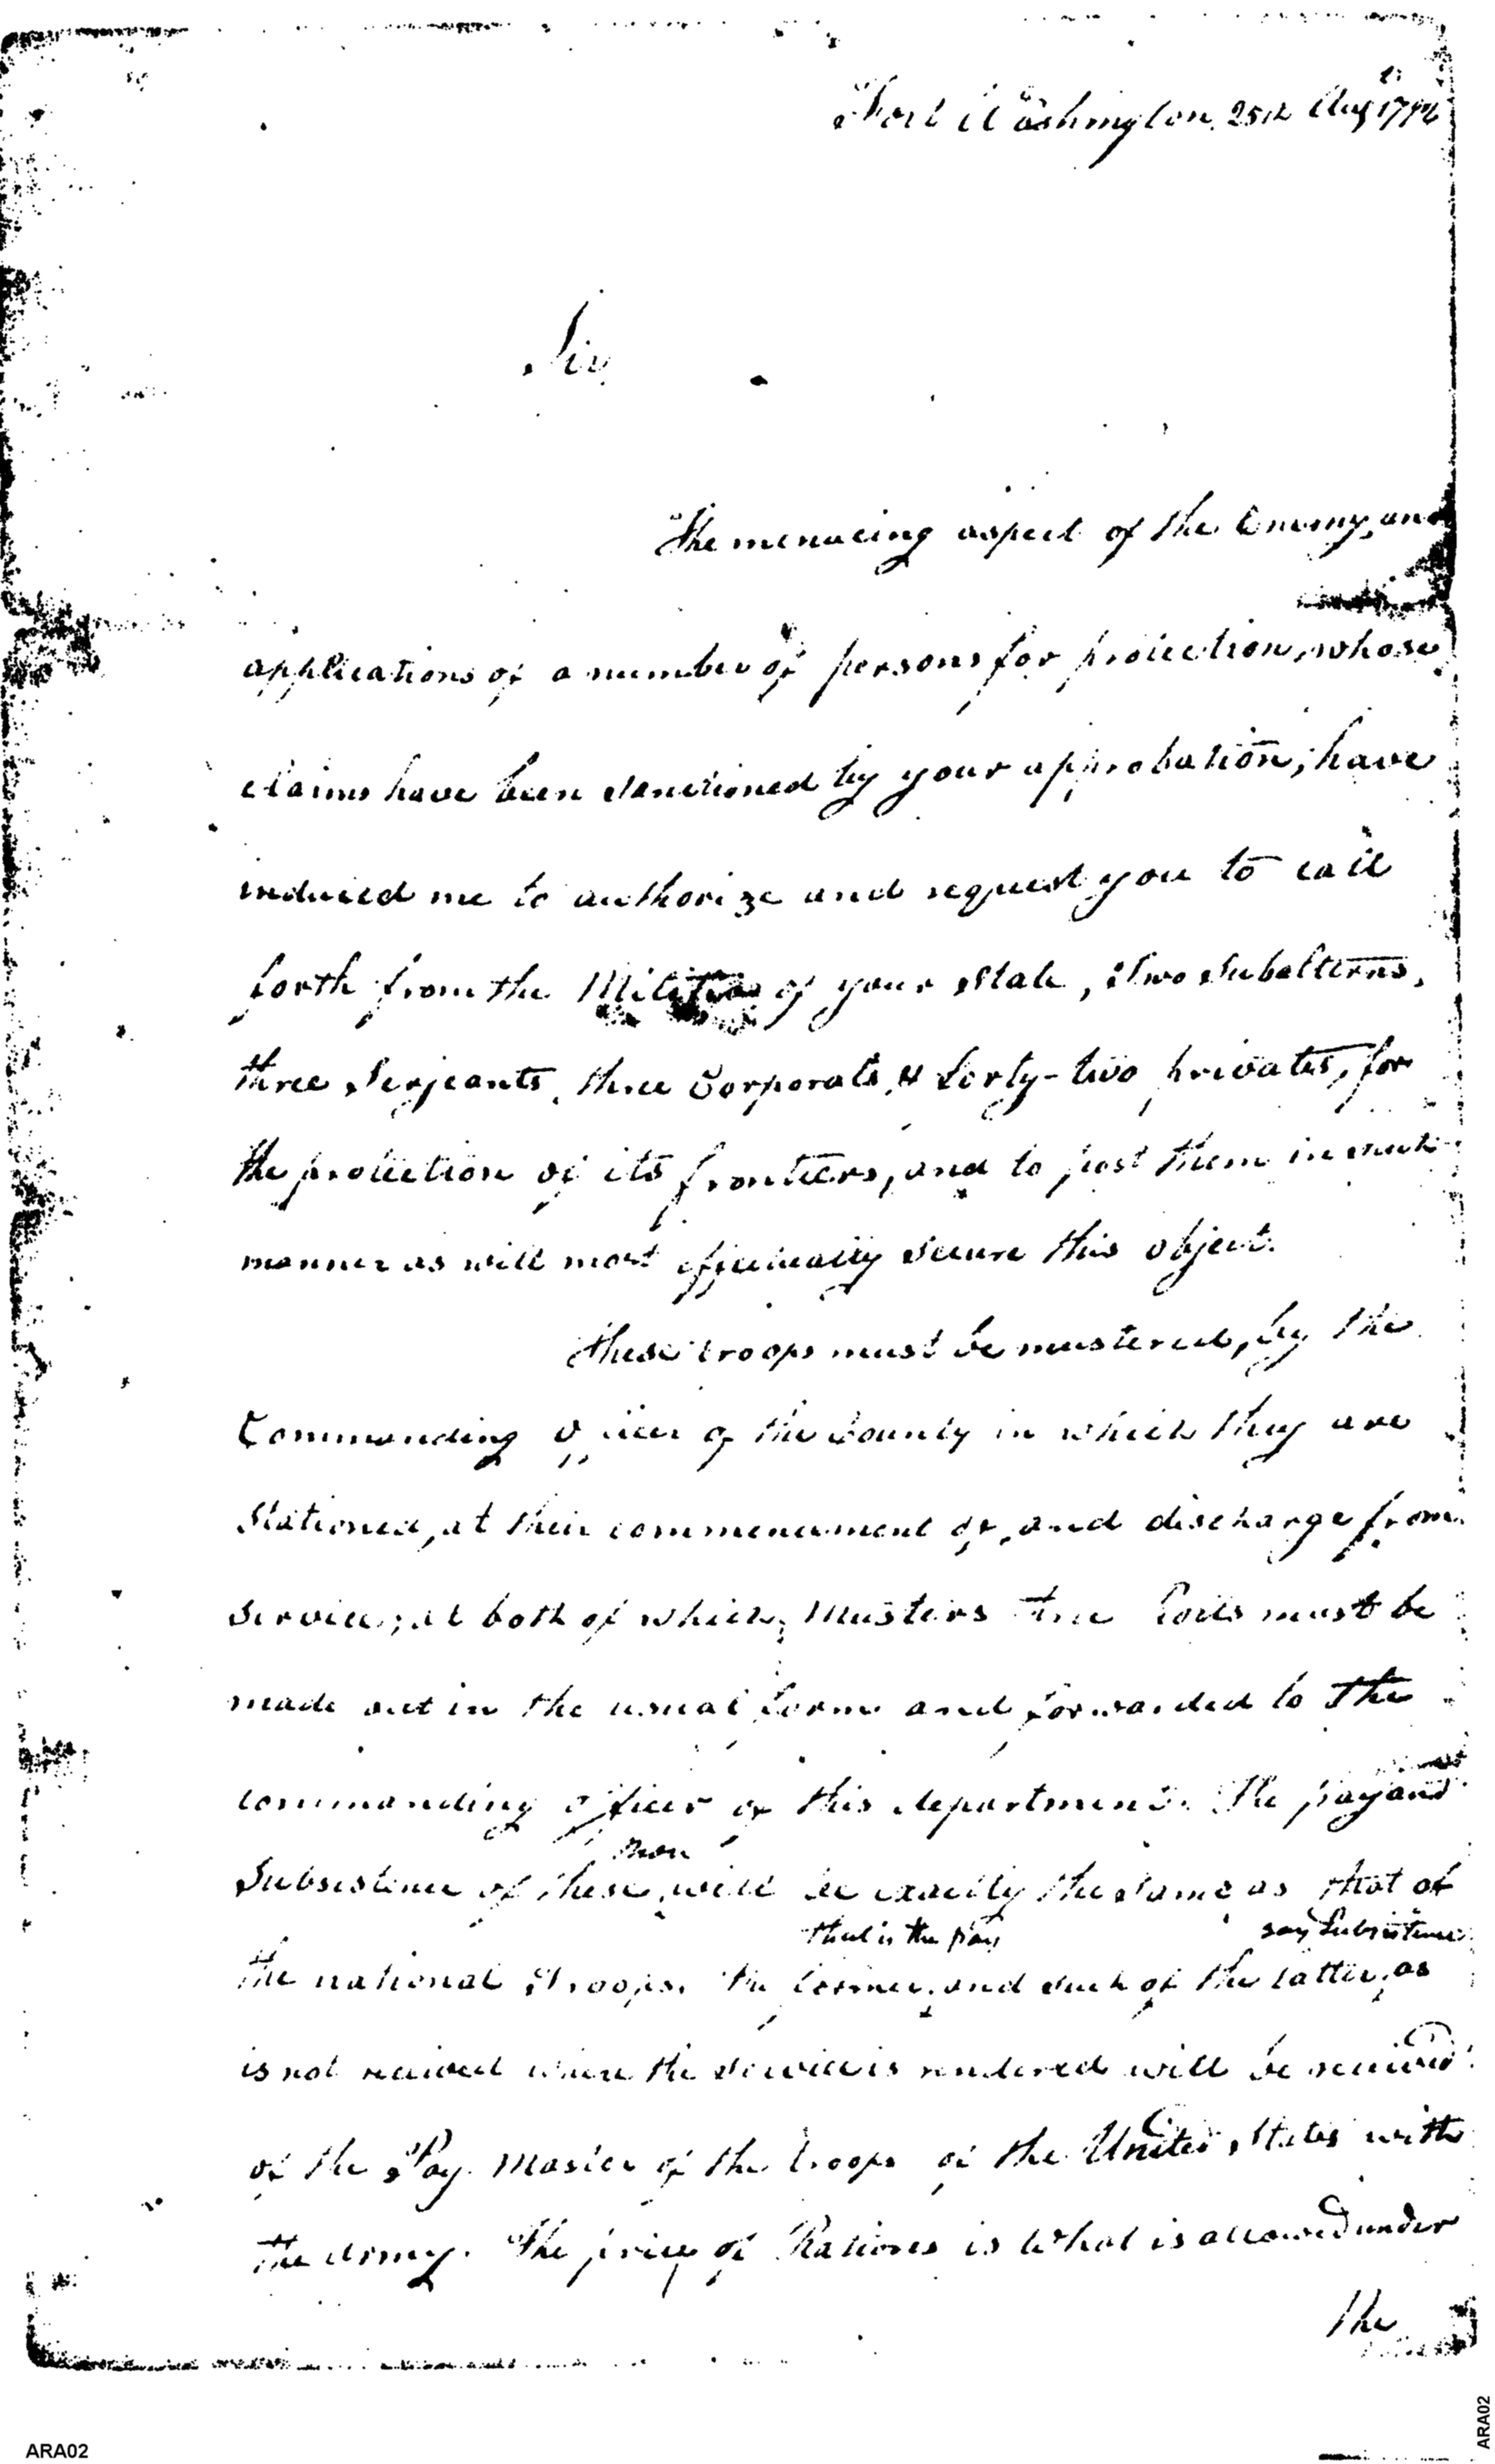 Fort Washington, 25th Aug 1792
Sir
The menacing aspect of the Enemy, and
applications of a number of persons for protection, whose
claims have been sanctioned by your approbation, have
induced me to authorize and request you to call
forth from the Militia of your State, two Subalterns,
three Serjeants, three Corporals, & forty-two privates, for
the protection of its frontiers, and to post them in such
manner as will most effectually secure this object.
These troops must be mustered, by the
Commanding Officer of the County in which they are
Stationed, at their commencement of, and discharge from
service; at both of which, Musters the Rolls must be
made out in the usual form and forwarded to the
commanding officer of this department. The pay and
men
Subsistence of these will be exactly the same as that of
that is the pay say Subsistence
the national Troops. The former, and such of the latter, as
is not received when the service is rendered will be received
of the Pay Master of the troops of the United States with
the Army. The price of Rations is what is allowed under
the
ARA02
ARA02